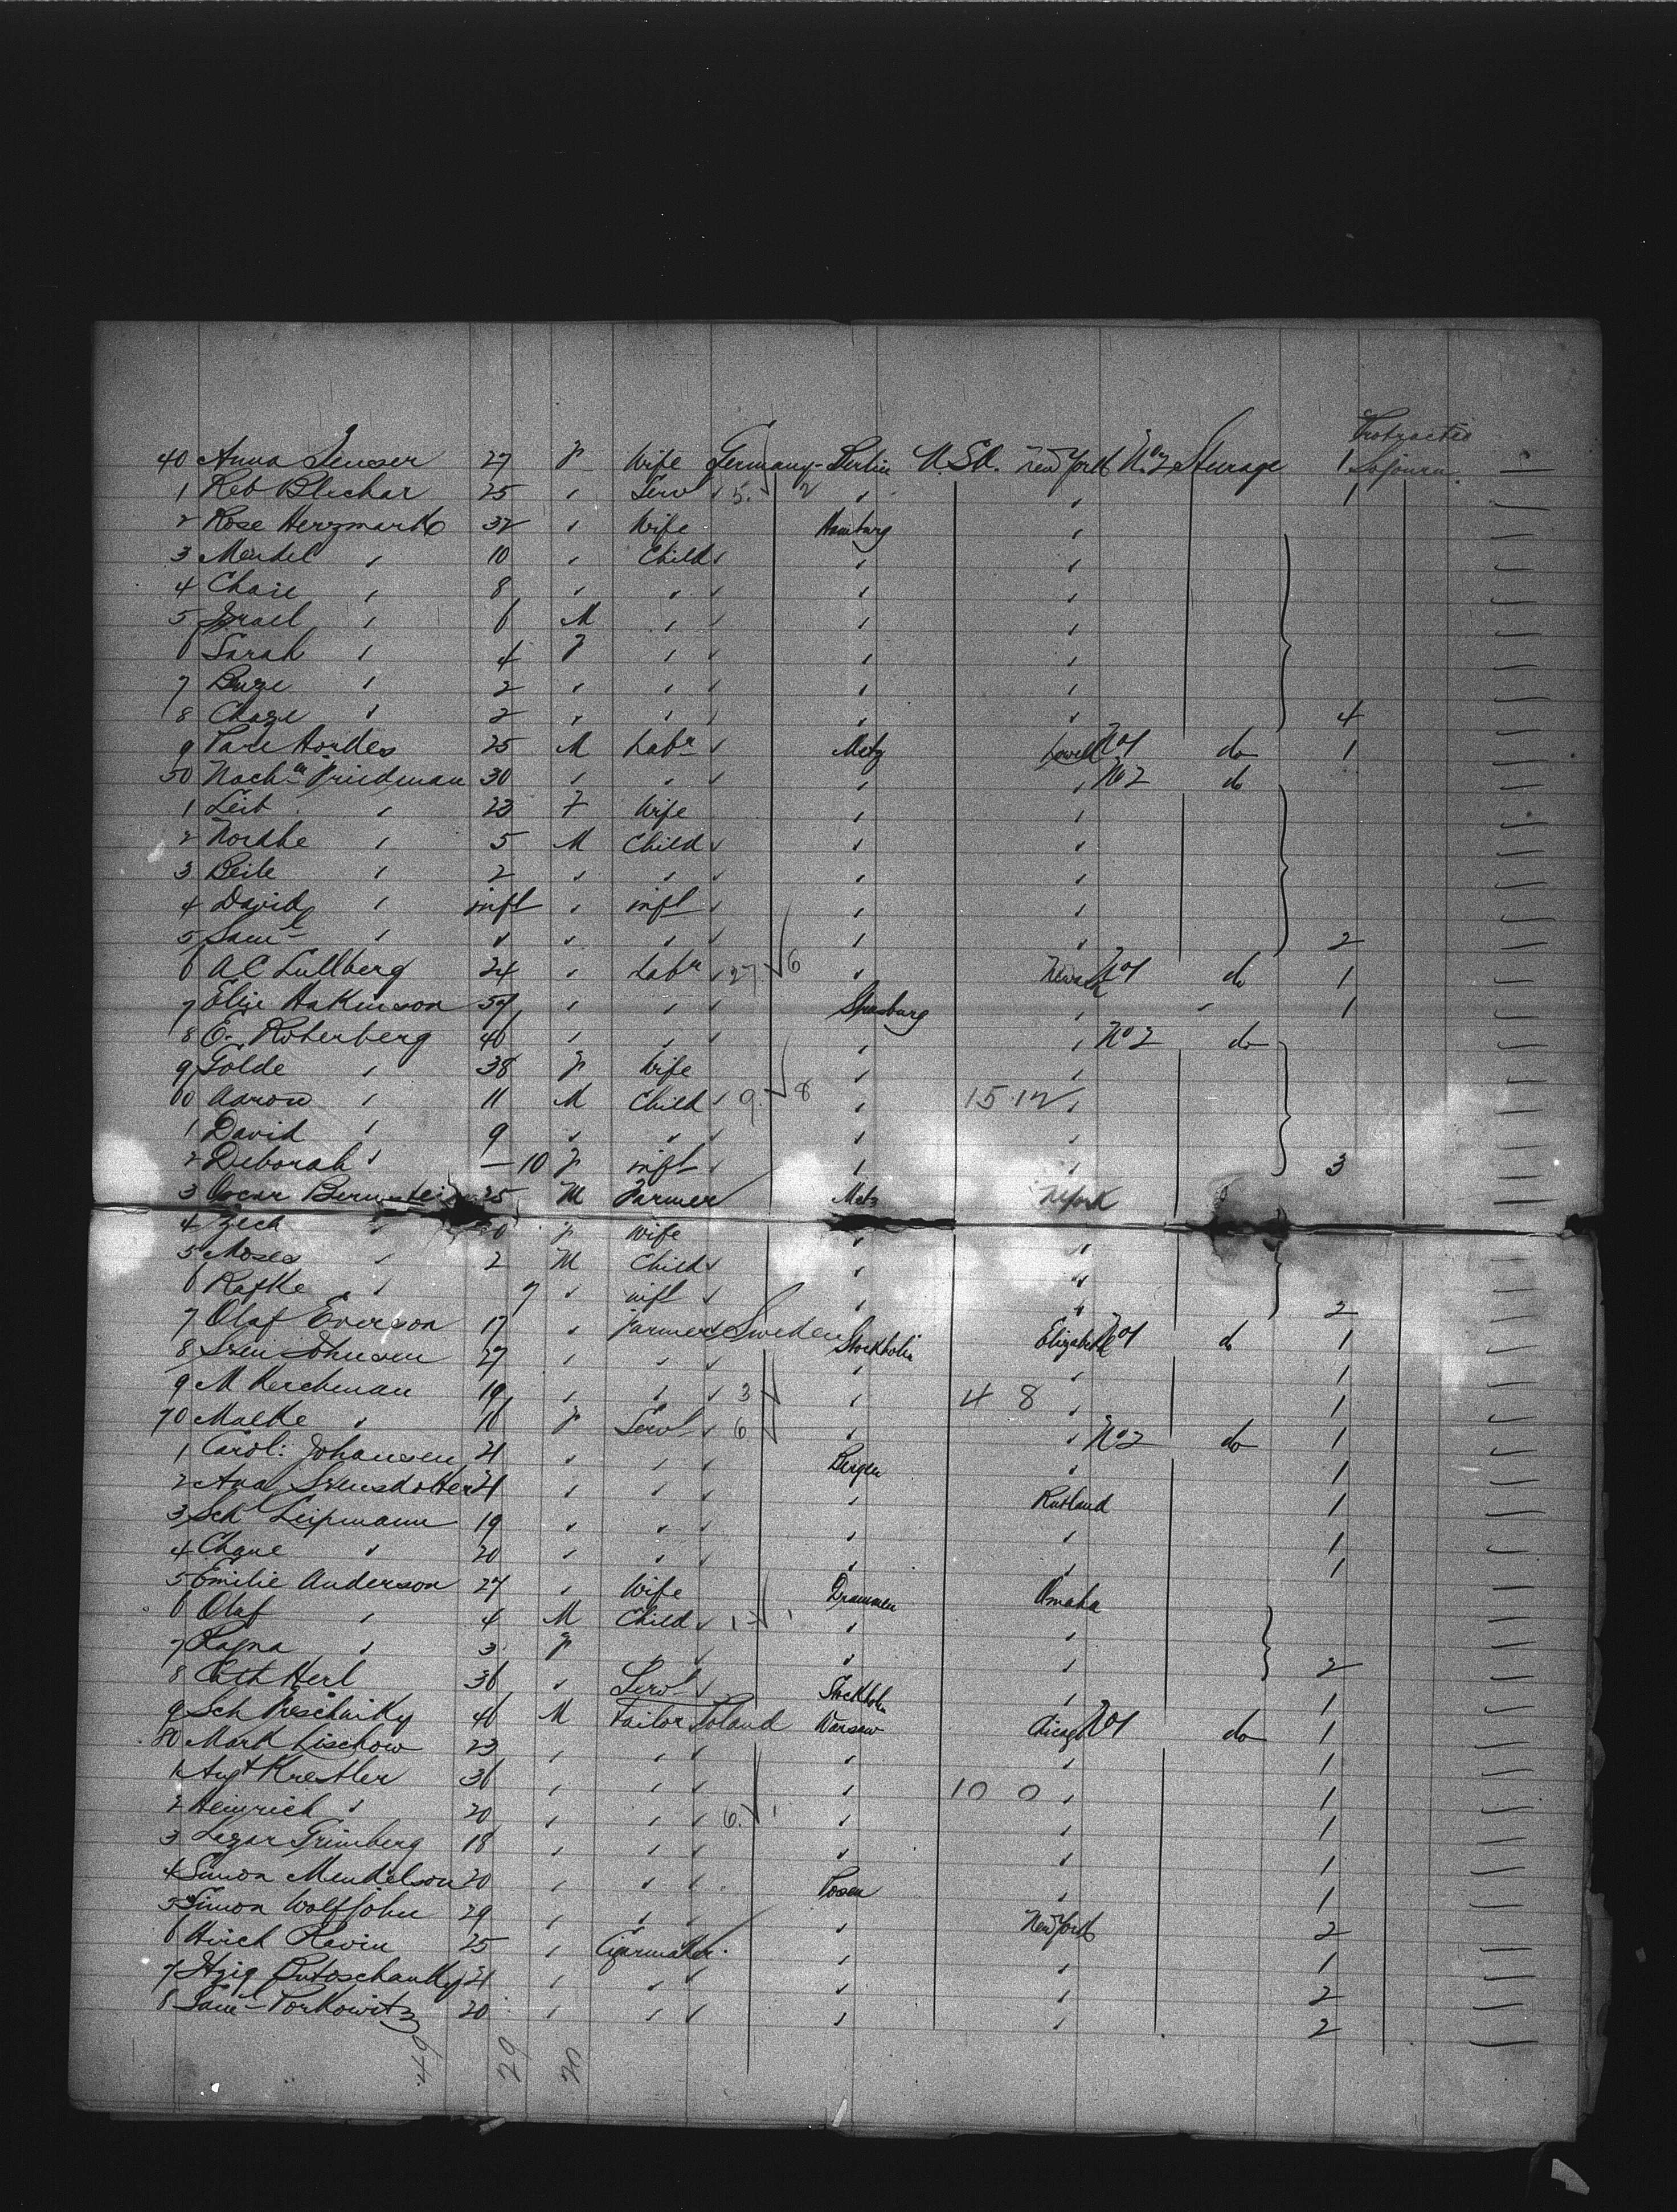 Protracted
40 Anna Senser 27 F Wife Germany Berlin U.S.A. New York No 2 Steerage 1 Sojourn
1 Reb Blechar 25 " Servt 5. 2 " " 1
2 Rose Herzmark 32 " Wife Hamburg "
3 Mendel " 10 " Child " "
4 Chaie " 8 " " " "
5 Israel " 6 M " " "
6 Sarah " 4 F " " "
7 " 2 " " " "
8 Chaze " 2 " " " " 4
9 Hordes 25 M Labr Metz Lowell No 1 do 1
50 Nachm Friedman 30 " " " " No 2 do
1 Leib " 23 F Wife " "
2 Nordhe " 5 M Child " "
3 Beile " 2 " " " "
4 David " inft " inft " "
5 Saml " " " " " " 2
6 A C Lullberg 24 " Labr 27 6 " Newark No 1 do 1
7 Elie Hakinson 59 " " Strasburg " " 1
8 Roterberg 40 " " " " No 2 do
9 Golde " 38 F Wife " "
60 Aaron " 11 M Child 9. 8 " 15 12 "
1 David " 9 " " " "
2 Deborah " — 10 F inft " " 3
3 Oscar 25 M Farmer Metz N York
4 " F Wife " "
5 Moses " 2 M Child " "
6 Rafke " 7 " inft " " 2
7 Olaf Everson 17 " Farmer Sweden Stockholm Elizabeth No 1 do 1
8 Sven Johnsen 27 " " " " 1
9 M Kerchman 19 " " 3 " 4 8 " 1
70 Malke " 16 F Servt 6 " " No 2 do 1
1 Carol: Johansen 21 " " Bergen " 1
2 Ana Svensdotter 21 " " " Rutland 1
3 Sch Leipmann 19 " " " " 1
4 Chane " 20 " " " " 1
5 Emilie Anderson 27 " Wife Drammen Omaha
6 Olaf " 4 M Child 1 1 " "
7 Ragna " 3 F " " " 2
8 Cath Herl 36 " Servt Stockholm " 1
9 Sch 40 M Tailor Poland Warsaw Chicago No 1 do 1
80 Mark Lischow 23 " " " " 1
1 Augt Krestler 36 " " " 10 0 " 1
2 Heinrich " 20 " " 6. 1 " " 1
3 Lezar Grinberg 18 " " " " 1
4 Simon Mendelson 20 " " Posen " 1
5 Simon Wolfsohn 29 " " " New York 2
6 Hirch Kavin 25 " Cigarmaker " " 1
7 Itzig Butoschansky 21 " " " " 2
8 Saml Porkowitz 20 " " " " 2
49 29 20